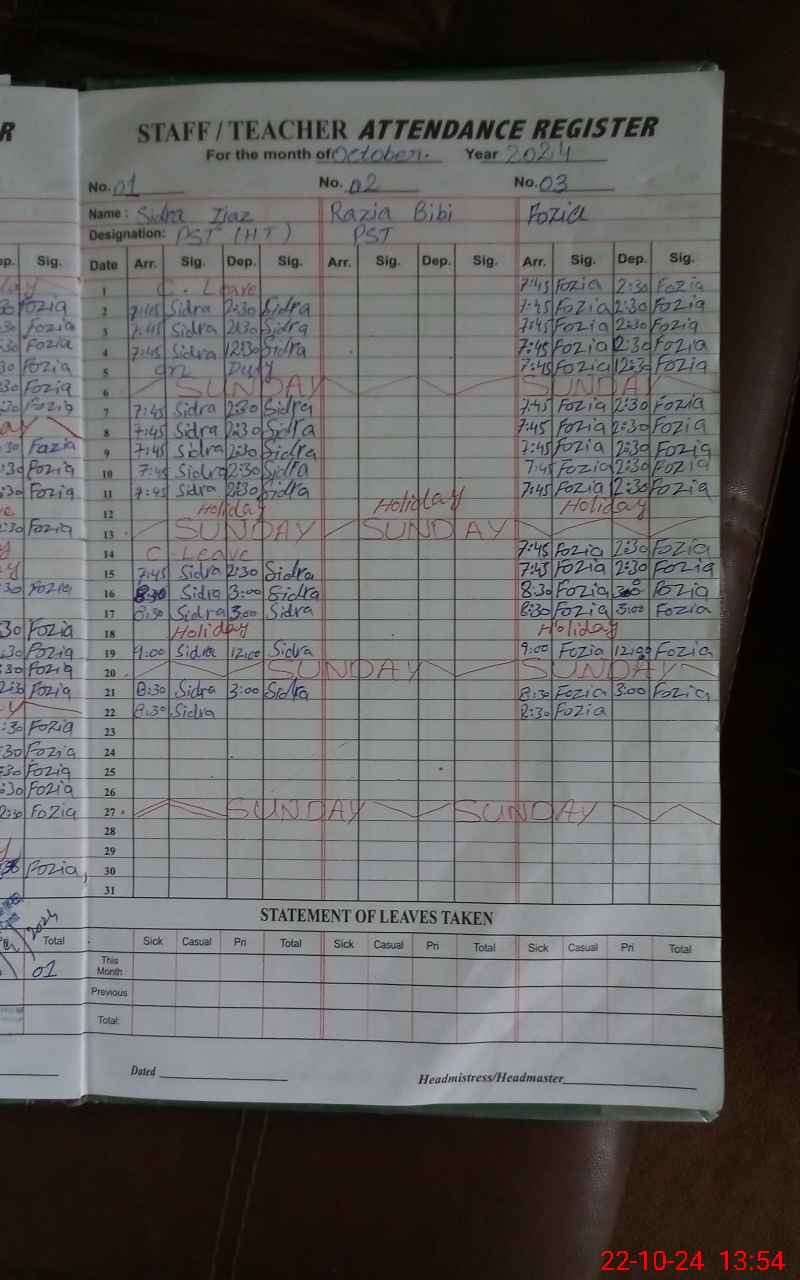 R
STAFF / TEACHER ATTENDANCE REGISTER
For the month of October. Year 2024
No. 01 No. 02 No. 03
Name: Sidra Ijaz Razia Bibi Fozia
Designation: PST (HT) PST
ep. Sig. Date Arr. Sig. Dep. Sig. Arr. Sig. Dep. Sig. Arr. Sig. Dep. Sig.
1 C. Leave 7:45 Fozia 2:30 Fozia
Fozia 2 7:45 Sidra 2:30 Sidra 7:45 Fozia 2:30 Fozia
Fozia 3 7:45 Sidra 2:30 Sidra 7:45 Fozia 2:30 Fozia
Fozia 4 7:45 Sidra 12:30 Sidra 7:45 Fozia 12:30 Fozia
Fozia 5 Duty 7:45 Fozia 12:30 Fozia
Fozia 6 SUNDAY SUNDAY
Fozia 7 7:45 Sidra 2:30 Sidra 7:45 Fozia 2:30 Fozia
8 7:45 Sidra 2:30 Sidra 7:45 Fozia 2:30 Fozia
Fazia 9 7:45 Sidra 2:30 Sidra 7:45 Fozia 2:30 Fozia
Fozia 10 7:45 Sidra 2:30 Sidra 7:45 Fozia 2:30 Fozia
Fozia 11 7:45 Sidra 2:30 Sidra 7:45 Fozia 2:30 Fozia
12 Holiday Holiday Holiday
Fozia 13 SUNDAY SUNDAY
14 C Leave 7:45 Fozia 2:30 Fozia
15 7:45 Sidra 2:30 Sidra 7:45 Fozia 2:30 Fozia
Fozia 16 8:30 Sidra 3:00 Sidra 8:30 Fozia 3:00 Fozia
17 8:30 Sidra 3:00 Sidra 8:30 Fozia 3:00 Fozia
Fozia 18 Holiday Holiday
Fozia 19 9:00 Sidra 12:00 Sidra 9:00 Fozia 12:00 Fozia
Fozia 20 SUNDAY SUNDAY
Fozia 21 8:30 Sidra 3:00 Sidra 8:30 Fozia 3:00 Fozia
22 8:30 Sidra 8:30 Fozia
Fozia 23
Fozia 24
Fozia 25
Fozia 26
Fozia 27 SUNDAY SUNDAY
28
29
Fozia, 30
31
STATEMENT OF LEAVES TAKEN
Total Sick Casual Pri Total Sick Casual Pri Total Sick Casual Pri Total
01 This Month
Previous
Total:
Dated Headmistress/Headmaster
22-10-24 13:54